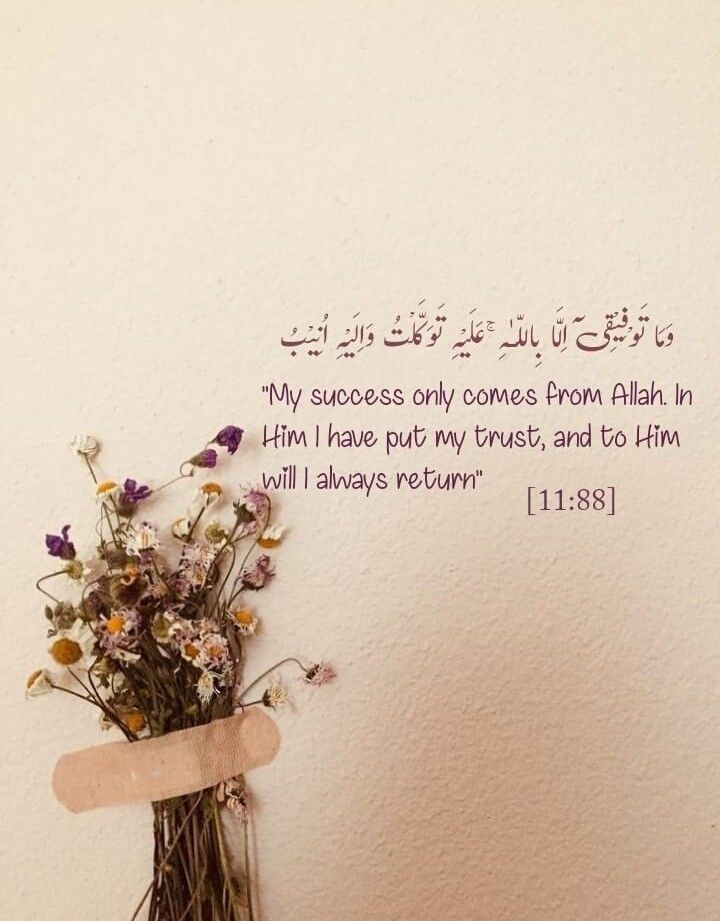 وَمَا تَوْفِيْقِىْٓ اِلَّا بِاللّٰهِ ۚ عَلَيْهِ تَوَكَّلْتُ وَاِلَيْهِ اُنِيْبُ
"My success only comes from Allah. In
Him I have put my trust, and to Him
will I always return"
[11:88]